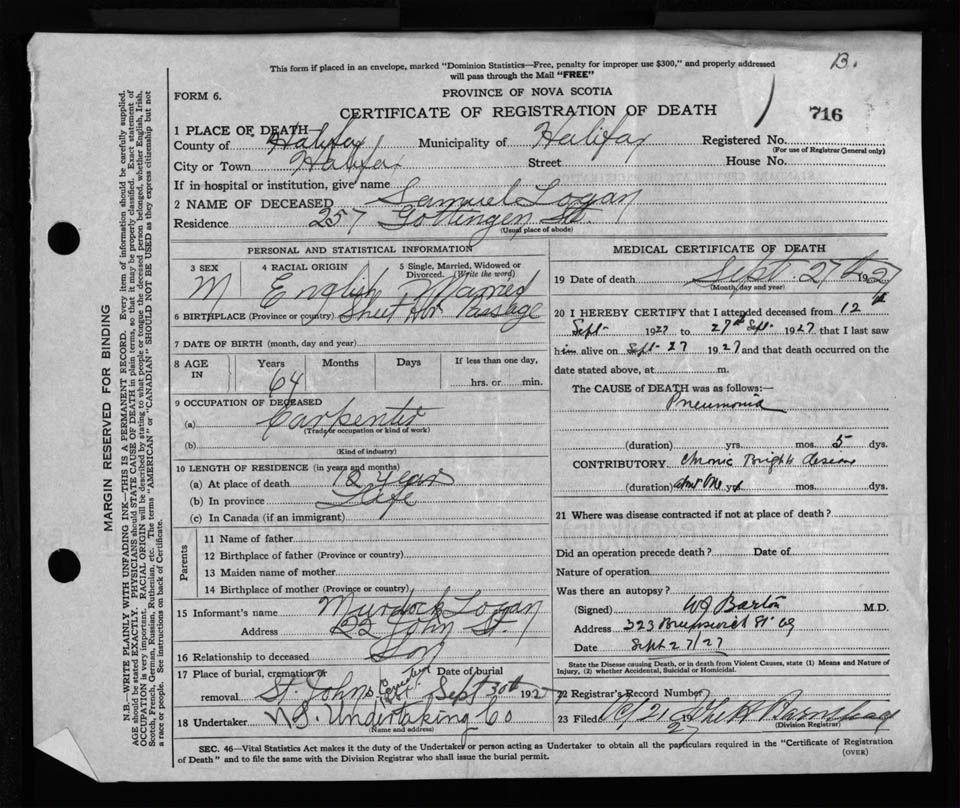 This form if placed in an envelope, marked "Dominion Statistics—Free, penalty for improper use $300," and properly addressed
will pass through the Mail "FREE"
B.
FORM 6.
PROVINCE OF NOVA SCOTIA
CERTIFICATE OF REGISTRATION OF DEATH
716
1 PLACE OF DEATH
County of Halifax Municipality of Halifax Registered No.
(For use of Registrar General only)
City or Town Halifax Street House No.
If in hospital or institution, give name
2 NAME OF DECEASED Samuel Logan
Residence 257 Gottingen St.
(Usual place of abode)
PERSONAL AND STATISTICAL INFORMATION
3 SEX 4 RACIAL ORIGIN 5 Single, Married, Widowed or
Divorced. (Write the word)
M English Married
6 BIRTHPLACE (Province or country) Sheet Hbr Passage
7 DATE OF BIRTH (month, day and year)
8 AGE IN Years Months Days If less than one day,
64 hrs. or min.
9 OCCUPATION OF DECEASED
(a) Carpenter
(Trade or occupation or kind of work)
(b)
(Kind of industry)
10 LENGTH OF RESIDENCE (in years and months)
(a) At place of death 12 years
(b) In province Life
(c) In Canada (if an immigrant)
Parents
11 Name of father
12 Birthplace of father (Province or country)
13 Maiden name of mother
14 Birthplace of mother (Province or country)
15 Informant's name Murdock Logan
Address 122 John St.
16 Relationship to deceased Son
17 Place of burial, cremation or Date of burial
removal St. Johns Sept 30th 1927
18 Undertaker N.S. Undertaking Co
(Name and address)
MEDICAL CERTIFICATE OF DEATH
19 Date of death Sept. 27th 1927
(Month, day and year)
20 I HEREBY CERTIFY that I attended deceased from 12th
Sept 1927 to 27th Sept 1927 that I last saw
him alive on Sept 27 1927 and that death occurred on the
date stated above, at m.
The CAUSE of DEATH was as follows:—
Pneumonia
(duration) yrs. mos. 5 dys.
CONTRIBUTORY Chronic Bright disease
(duration) yrs. mos. dys.
21 Where was disease contracted if not at place of death?
Did an operation precede death? Date of
Nature of operation
Was there an autopsy?
(Signed) W Barton M.D.
Address 323 Brunswick St
Date Sept 27/27
State the Disease causing Death, or in death from Violent Causes, state (1) Means and Nature of
Injury, (2) whether Accidental, Suicidal or Homicidal.
22 Registrar's Record Number
23 Filed Oct 21 27
(Division Registrar)
SEC. 46—Vital Statistics Act makes it the duty of the Undertaker or person acting as Undertaker to obtain all the particulars required in the "Certificate of Registration
of Death" and to file the same with the Division Registrar who shall issue the burial permit. (OVER)
MARGIN RESERVED FOR BINDING
N.B.—WRITE PLAINLY WITH UNFADING INK—THIS IS A PERMANENT RECORD. Every item of information should be carefully supplied.
AGE should be stated EXACTLY. PHYSICIANS should STATE CAUSE OF DEATH in plain terms, so that it may be properly classified. Exact statement of
OCCUPATION is very important. RACIAL ORIGIN will be described by stating to what people or tongue the deceased person belonged, whether English, Irish,
Scotch, French, German, Russian, Ruthenian, etc. The terms "AMERICAN" or "CANADIAN" SHOULD NOT BE USED as they express citizenship but not
a race or people. See instructions on back of Certificate.